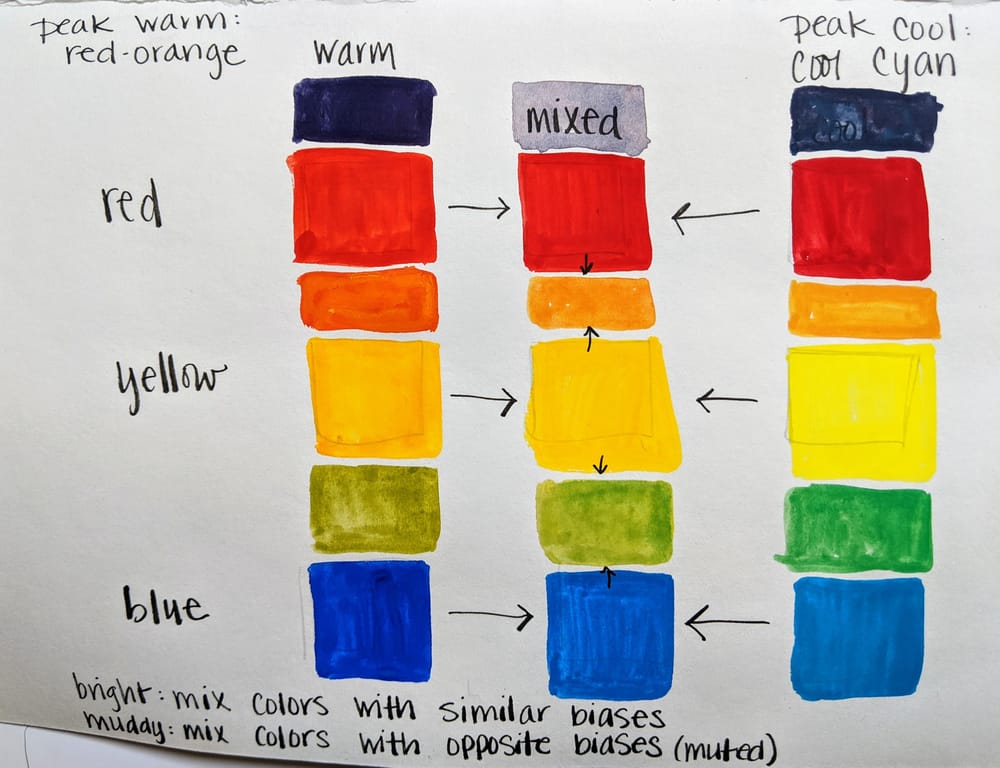 peak warm:
red-orange
warm
mixed
peak cool:
cool cyan
cool
red
yellow
blue
bright: mix colors with similar biases
muddy: mix colors with opposite biases (muted)